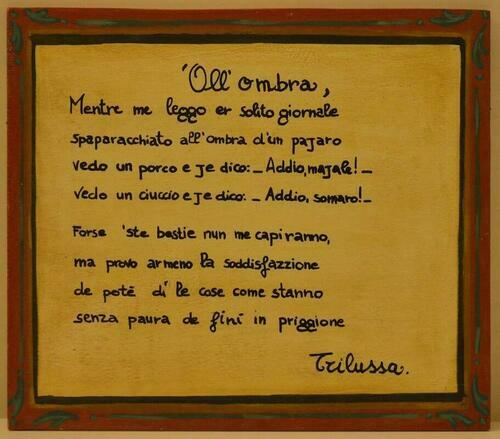 'Oll' ombra,
Mentre me leggo er solito giornale
spaparacchiato all'ombra d'un pajaro
vedo un porco e je dico:_ Addio, majale!_
vedo un ciuccio e je dico:_ Addio, somaro!_
Forse 'ste bestie nun me capiranno,
ma provo armeno la soddisfazzione
de potè di' le cose come stanno
senza paura de fini in priggione
Trilussa.